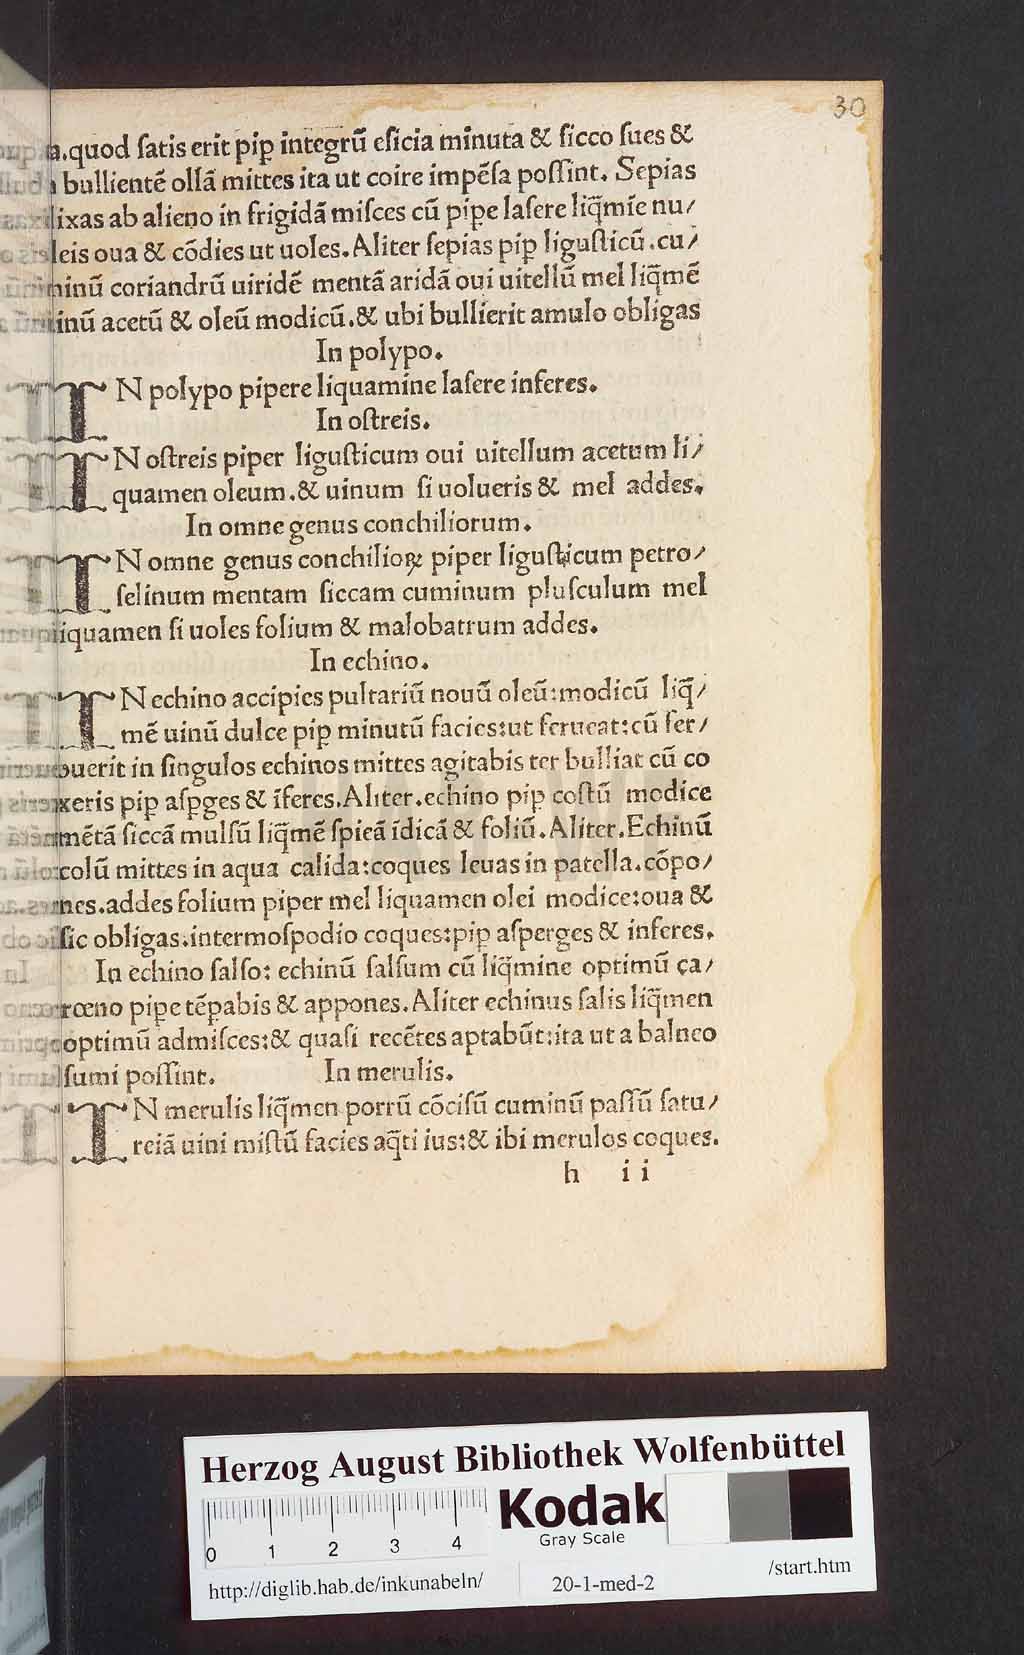 30
a.quod ſatis erit pip̲ integrũ eſicia minuta & ſicco ſues &
bullientē ollã mittes ita ut coire impēſa poſſint. Sepias
lixas ab alieno in frigidã miſces cũ pip̲e laſere liq̃mĩe nu/
leis oua & cõdies ut uoles. Aliter ſepias pip̲ liguſticũ.cu/
minũ coriandrũ uiridē mentã aridã oui uitellũ mel liq̃mē
inũ acetũ & oleũ modicũ.& ubi bullierit amulo obligas
In polypo.
IN polypo pipere liquamine laſere inferes.
In oſtreis.
IN oſtreis piper liguſticum oui uitellum acetum li/
quamen oleum.& uinum ſi uolueris & mel addes.
In omne genus conchiliorum.
IN omne genus conchilioꝝ piper liguſticum petro/
ſelinum mentam ſiccam cuminum pluſculum mel
iquamen ſi uoles folium & malobatrum addes.
In echino.
IN echino accipies pultariũ nouũ oleũ:modicũ liq̃/
mē uinũ dulce pip̲ minutũ facies:ut ferueat:cũ fer/
buerit in ſingulos echinos mittes agitabis ter bulliat cũ co
xeris pip̲ aſp̲ges & ĩferes. Aliter.echino pip̲ coſtũ modice
mētã ſiccã mulſũ liq̃mē ſpicã ĩdicã & foliũ. Aliter. Echinũ
colũ mittes in aqua calida:coques leuas in patella.cõpo/
nes.addes folium piper mel liquamen olei modice:oua &
ſic obligas:intermoſpodio coques:pip̲ aſperges & inferes.
In echino ſalſo: echinũ ſalſum cũ liq̃mine optimũ ca/
rœno pip̲e tēp̲abis & appones. Aliter echinus ſalis liq̃men
optimũ admiſces:& quaſi recētes aptabũt:ita ut a balneo
ſumi poſſint. In merulis.
IN merulis liq̃men porrũ cõciſũ cuminũ paſſũ ſatu/
reiã uini miſtũ facies aq̃ti ius:& ibi merulos coques.
h ii
Herzog August Bibliothek Wolfenbüttel
Kodak
Gray Scale
0 1 2 3 4
http://diglib.hab.de/inkunabeln/
20-1-med-2
/start.htm